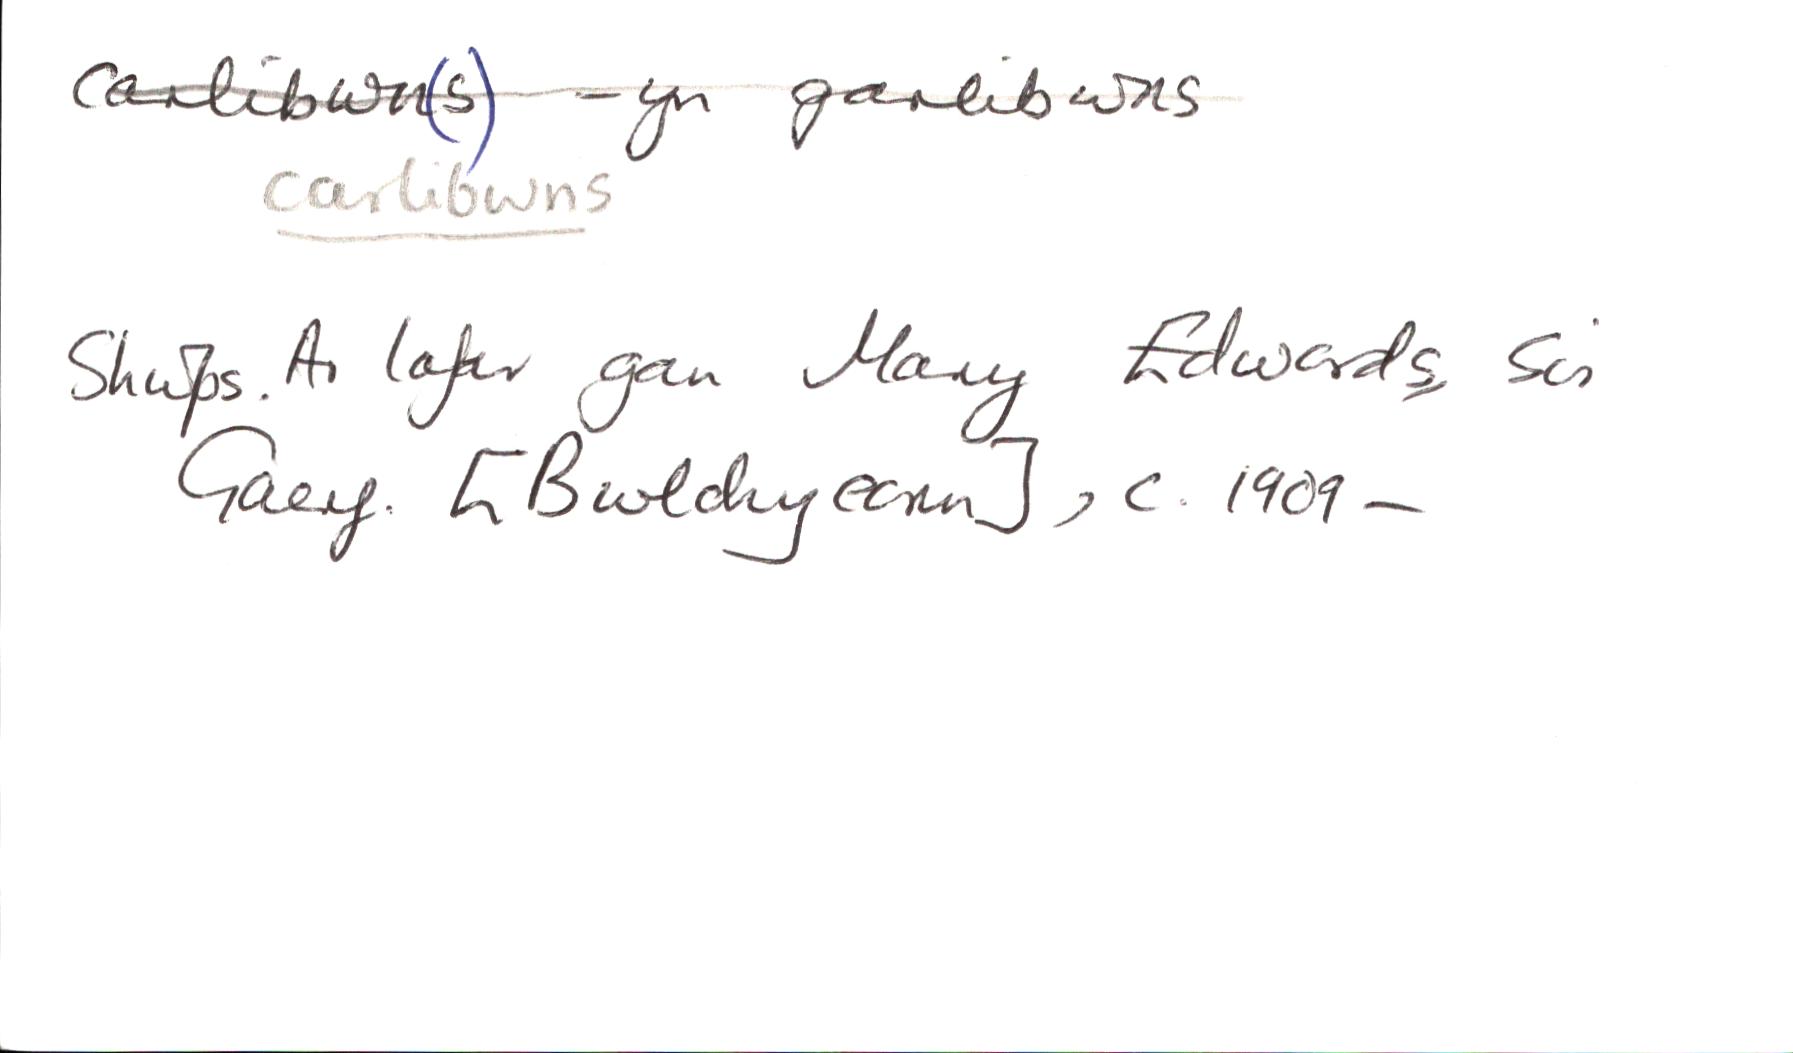 carlibwn(s) - yn garlibwns
carlibwns
Shwps. Ar lafar gan Mary Edwards, Sir
Gaerf. [Bwlchycorn], c. 1909 –